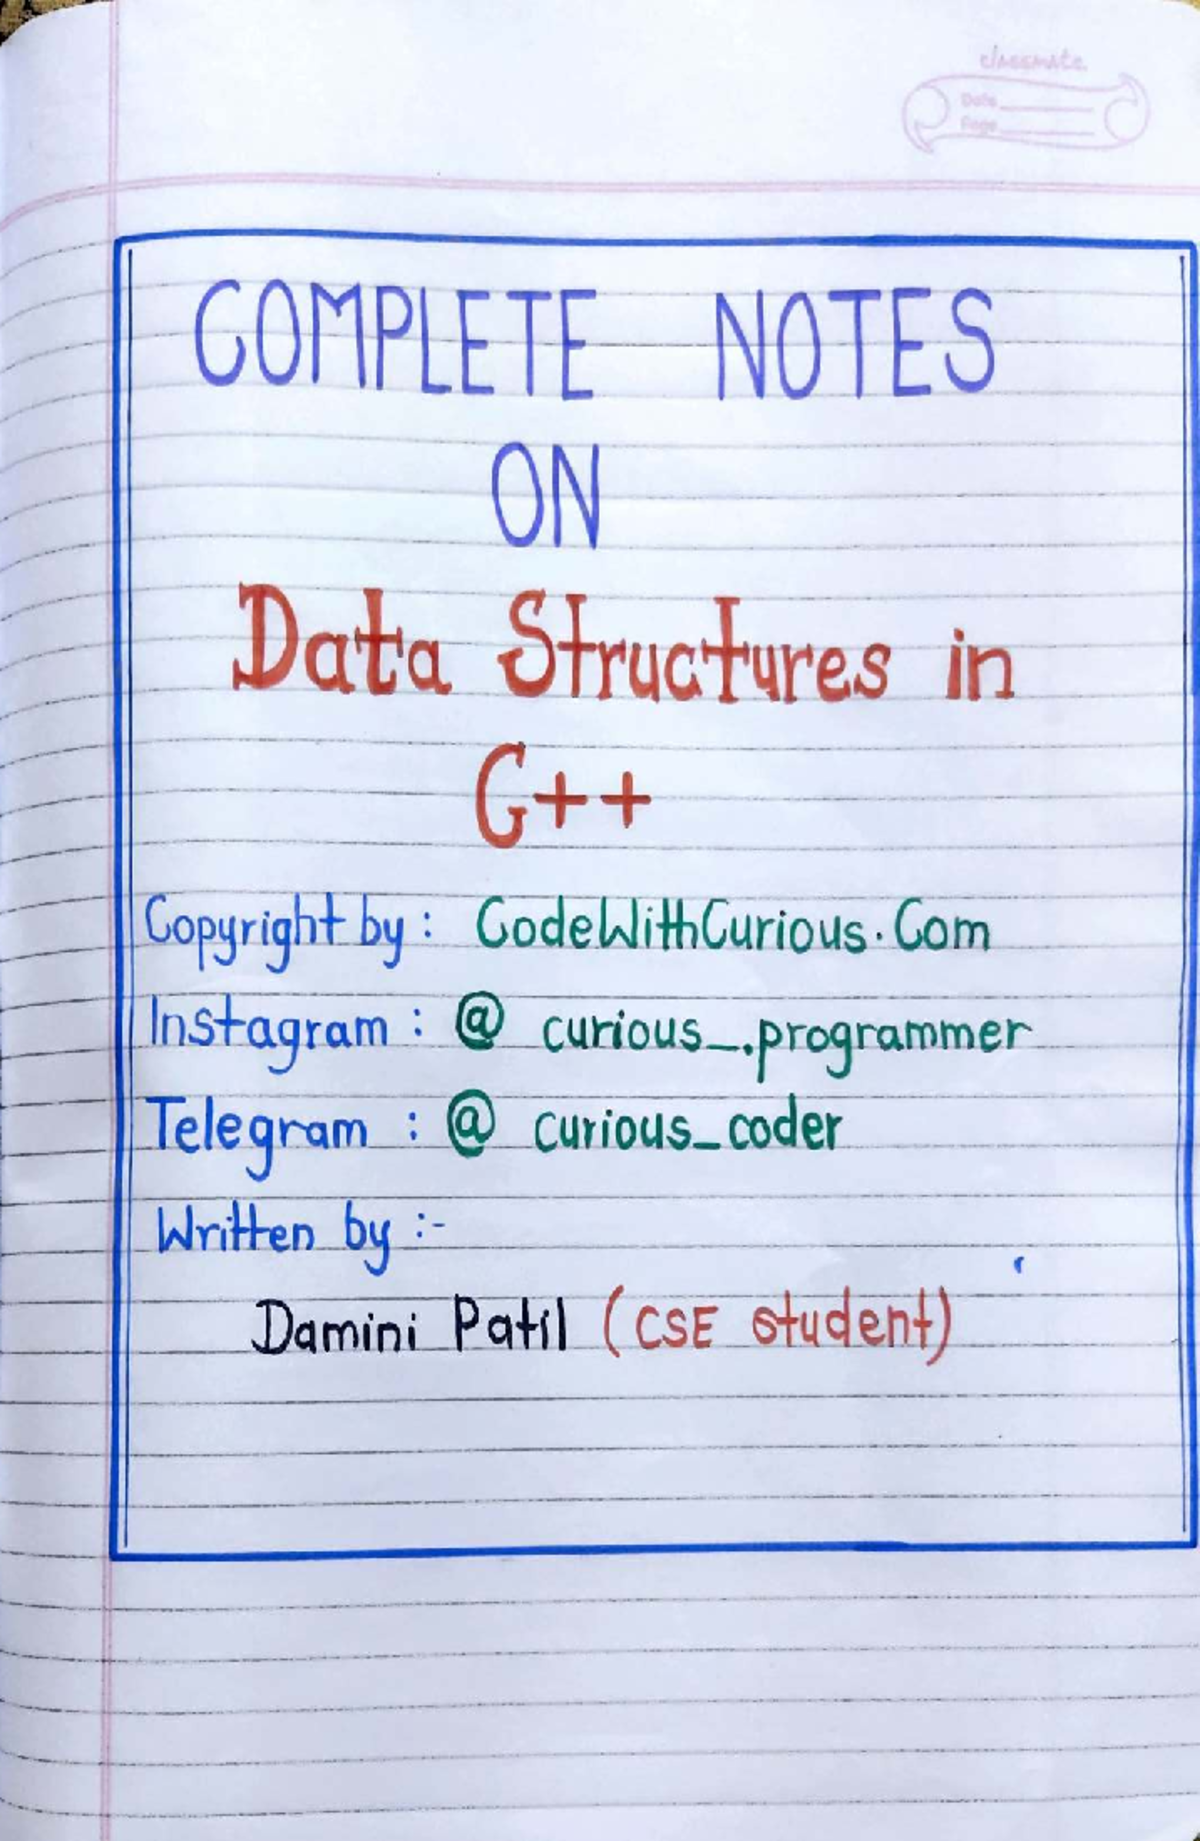 classmate
Date
Page
COMPLETE NOTES
ON
Data Structures in
C++
Copyright by : CodeWithCurious.Com
Instagram : @ curious_.programmer
Telegram : @ curious_coder
Written by :-
Damini Patil (CSE student)